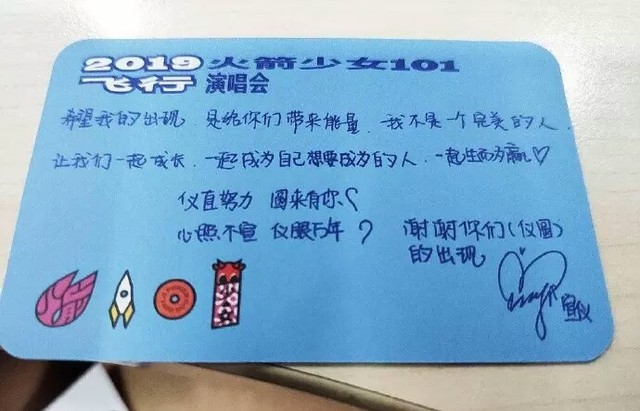 2019火箭少女101
飞行演唱会
希望我的出现,是给你们带来能量,我不是一个完美的人,
让我们一起成长,一起成为自己想要成为的人,一起生而为赢♡
仪直努力 圆来有你
心照不宣 仪眼万年
谢谢你们(仪圆)
的出现
宣仪